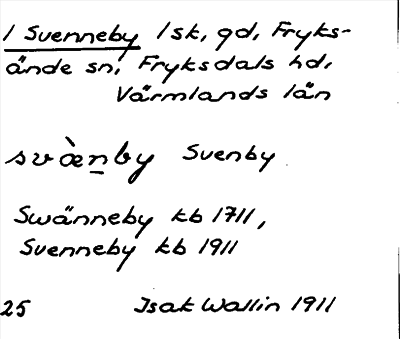 / Svenneby / sk, gd, Fryks-
ände sn, Fryksdals hd,
Värmlands län
svæ̀n̠by Svenby
Swänneby kb 1711,
Svenneby kb 1911
25 Isak Wallin 1911